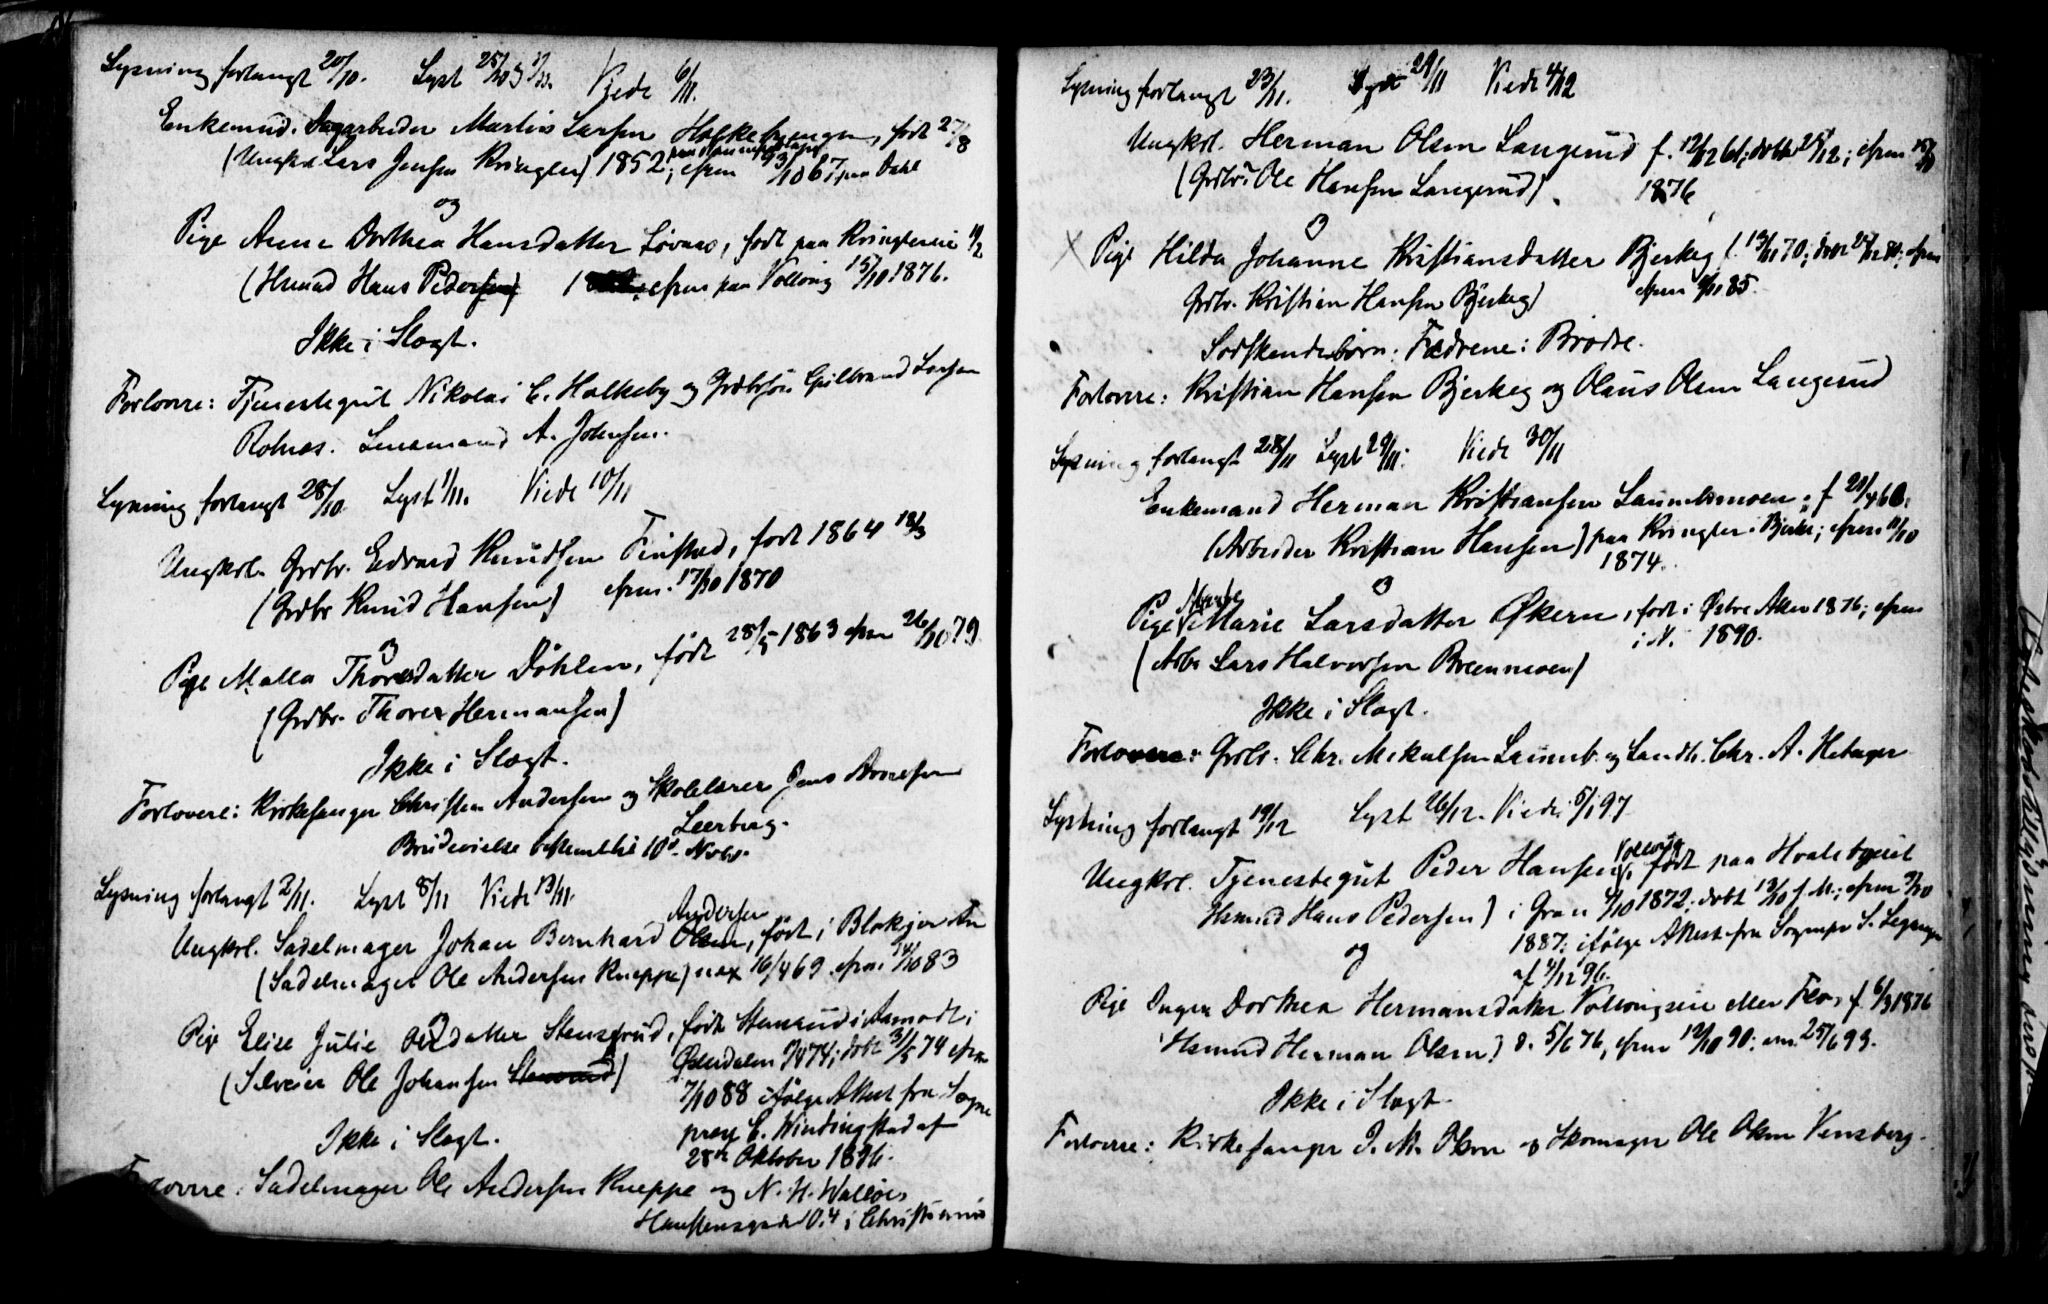 Lysning forlangt 20/10. Lyst 25/10 Viede 6/11.
Enkemnd. Sagarbeider Martin Larsen født 27/8
(Ungkrl Lars Jensen Kringler) 1852; efrm 67 paa Dahl
og
Pige Anne Dorthea Hansdatter Løvaas, født paa Kringlereie
(Hsmnd Hans Pedersen) efrm paa Vollaug 15/10 1876.
Ikke i Slægt.
Forlovere: Tjenestegut Nikolai C. Holkeby og Grdbrsøn Gulbrand Larsen
Rolnæs. Lensmand A. Johnsen.
Lysning forlangt 28/10. Lyst 1/11. Viede 10/11
Ungkrl. Grdbr. Edvard Knudsen Finstad, født 1864 18/3
(Grdbr Knud Hansen) efrm. 17/10 1870
og
Pige Malla Thoresdatter Døhlen, født 28/5 1863 efrm 26/10 79.
(Grdbr. Thorer Hermansen)
Ikke i Slægt.
Forlovere: Kirkesanger Christen Andersen og Skolelærer Jens Arnesen
Leerberg.
Brudevielse bestemt til 10de Novbr.
Lysning forlangt 2/11. Lyst 8/11 Viede 13/11.
Andersen
Ungkrl. Sadelmager Johan Bernhard Olsen, født i Blakjer An
(Sadelmager Ole Andersen Kneppe) nex 16/4 69. efrm. 14/10 83
Pige Elise Julie Olsdatter Stensrud, født Stensrud i Aamodt i
Østerdalen 7/4 74; døbt 31/5 74 efrm
(Selveier Ole Johansen Stensrud)
7/10 88 ifølge Attest fra Sogne
Ikke i Slægt.
prest C. Windingstad af
28de Oktober 1896.
Forlovere: Sadelmager Ole Andersen Kneppe og N. H. Walløes
Haustensgade O. 4 i Christiania
Lysning forlangt 23/11. Lyst 29/11 Viede 4/12
Ungkrl. Herman Olsen Langerud f. 12/12 61; døbt 26/12; efrm 15/10
(Grdbr. Ole Hansen Langerud). 1876
og
× Pige Hilda Johanne Kristiansdatter Bjerkeg f. 13/11 70; døbt efrm
Grdbr. Kristian Hansen Bjerkeg) efrm 85.
Sødskendebørn: Fædrene: Brødre.
Forlovere: Kristian Hansen Bjerkeg og Olaus Olsen Langerud
Lysning forlangt 28/11 Lyst 29/11. Viede 30/11
Enkemand Herman Kristiansen Laumbsmoen, f 21/4 60.
(Arbeider Kristian Hansen) paa Kringler i Bjerke; efrm 11/10
1874.
og
Pige Marie Larsdatter Økern, født i Østre Aker 1876; efrm
i N. 1890.
(Arbr Lars Halvorsen Brænnmoen)
Ikke i Slægt.
Forlovere: Grdbr. Chr. Mikalsen Laumb. og Landh. Chr. A. Hebager
Lysning forlangt 19/12 Lyst 26/12. Viede 5/1 97.
Vollaug
Ungkrl. Tjenestegut Peder Hansen, født paa Hvalebyeiet
Hsmnd Hans Pedersen) i Gran 4/10 1872; døbt 13/10 f. M.; efrm 9/10
1887; ifølge Attest fra Sognepr S.
og
af 4/12 96.
Pige Inger Dorthea Hermansdatter Vollaugseie eller Flor, f. 6/3 1876
Hsmnd Herman Olsen) d. 5/6 76, efrm 12/10 90; 25/6 93.
Ikke i Slægt.
Forlovere: Kirkesanger J. M. Olsen og Skomager Ole Olsen Vensberg.